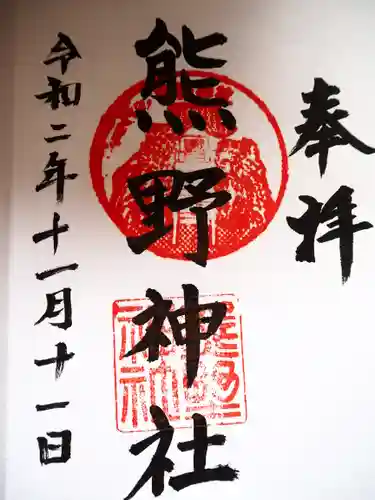 奉拝
熊野神社
令和二年十一月十一日